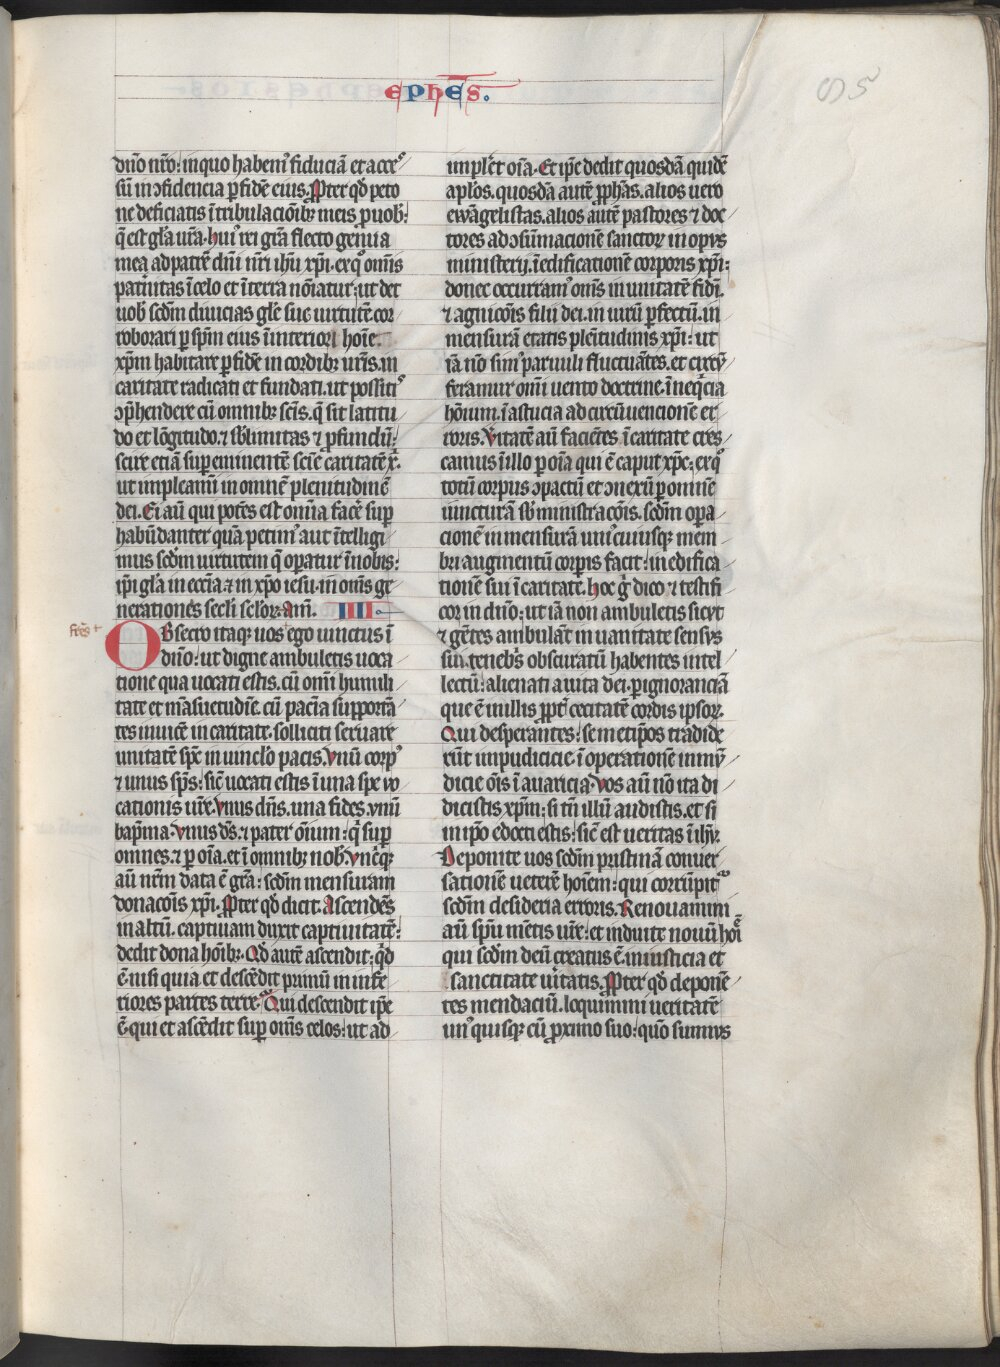 ephēs.
dn̄o nr̄o: in quo habem᷒ fiduciā et acces
sū in ɔfidencia ꝑ fidē eius. ꝓpter qd̄ peto
ne deficiatis ī tribulacōibꝫ meis ꝓ uob̄:
q̄ est gl̄a ur̄a. hui᷒ rei gr̄a flecto genua
mea ad patrē dn̄i nr̄i ih̄u xp̄i. ex quo om̄is
pat̄nitas ī celo et ī terra nōīatur: ut det
uob̄ scdm̄ diuicias gl̄e sue uirtutē cor
roborari ꝑ sp̄m eius ī interiori hoīe.
xp̄m habitare ꝑ fidē in cordibꝫ ur̄is. in
caritate radicati et fundati. ut possiti᷒
ɔp̄hendere cū omnibꝫ sc̄is. q̄ sit latitu
do et lōgitudo. ⁊ sb̄limitas ⁊ ꝓfundū:
scire etiā suꝑeminentē scīe caritatē x̄.
ut impleamī in omnē plenitudinē
dei. Ei aū qui potēs est omīa facē suꝑ
habūdanter quā petim᷒ aut ītelligi
mus scdm̄ uirtutem q̄ operatur ī nobis:
ip̄i gl̄a in ecc̄ia. ⁊ in xp̄o iesu. in om̄is ge
nerationēs secl̄i sc̄lorꝫ. am̄. IIII.
fr̄es +
OBsecro itaqꝫ uos + ego uinctus ī
dn̄o: ut digne ambuletis uoca
tione qua uocati estis. cū om̄i humili
tate et māsuetudīe. cū pacīa supportā
tes inuicē in caritate. solliciti seruare
unitatē sp̄c in uincl̄o pacis. Vnū corp᷒
⁊ unus sp̄s: sic̄ uocati estis ī una spe uo
cationis ur̄e. Vnus dn̄s. una fides. vnū
bap̄ma. Vnus ds̄. ⁊ pater ōnium: q̄ suꝑ
omnes. ⁊ ꝑ oīa. et ī omnibꝫ nob̄. Vnicꝫ
aū nr̄m data ē gr̄a: scdm̄ mensuram
donacōis xp̄i. ꝓpter qd̄ dicit. Ascendēs
in altū. captiuam duxit captiuitatē:
dedit dona hōibꝫ. Qd̄ autē ascendit: qd̄
ē. nisi quia et descēdit primū in infe
riores partes terre. Qui descendit ip̄e
ē. qui et ascēdit suꝑ om̄s celos: ut ad
impler̄t oīa. Et ip̄e dedit quosdā quidē
apl̄os. quosdā autē ꝓphās. alios uero
ewāgelistas. alios autē pastores ⁊ doc
tores ad ɔsūmacionē sanctorꝫ in opus
ministerij. ī edificationē corporis xp̄i:
donec occurram᷒ om̄s in unitatē fidī.
⁊ agnicōis filii dei. in uirū ꝑfectū. in
mensurā etatis pleītudinis xp̄i: ut
iā nō sim᷒ paruuli fluctuātes. et circū
feramur om̄i uento doctrine. ī neq̄cia
hōium. ī astucia ad circūuencionē er
roris. Vitatē aū faciētes. ī caritate cres
camus ī illo ꝑ oīa qui ē caput xp̄c: ex quo
totū corpus ɔpactū et ɔnexū ꝑ omnē
iuncturā sb̄ministracōis. scdm̄ opera
cionē in mensurā uni᷒cuiusqꝫ mem
bri augmentū corp̄is facit: in edifica
tionē sui ī caritate. hoc ḡ dico ⁊ testifi
cor in dn̄o: ut iā non ambuletis sicut
⁊ gētes ambulāt in uanitate sensus
sui. teneb̄s obscuratū habentes intel
lectū: alienati a uita dei. ꝑ ignoranciā
que ē in illis ꝓpt̄ cecitatē cordis ipsorꝫ.
Qui desperantes: semetip̄os tradide
rūt impudicicie. ī operationē inmū
dicie ōis ī auaricia. Vos aū nō ita di
dicistis xp̄m: si tn̄ illū audistis. et si
in ip̄o edocti estis: sic̄ est ueritas ī ih̄u.
Deponite uos scdm̄ pristinā conuer
sationē ueterē hoīem: qui corrūpit᷒
scdm̄ desideria erroris. Renouamini
aū sp̄u mētis ur̄e: et induite nouū hoī
qui scdm̄ deū creatus ē. in iusticia et
sanctitate ūitatis. ꝓpter qd̄ deponē
tes mendaciū. loquimini ueritatē
un᷒quisqꝫ cū ꝓximo suo: qm̄ sumus